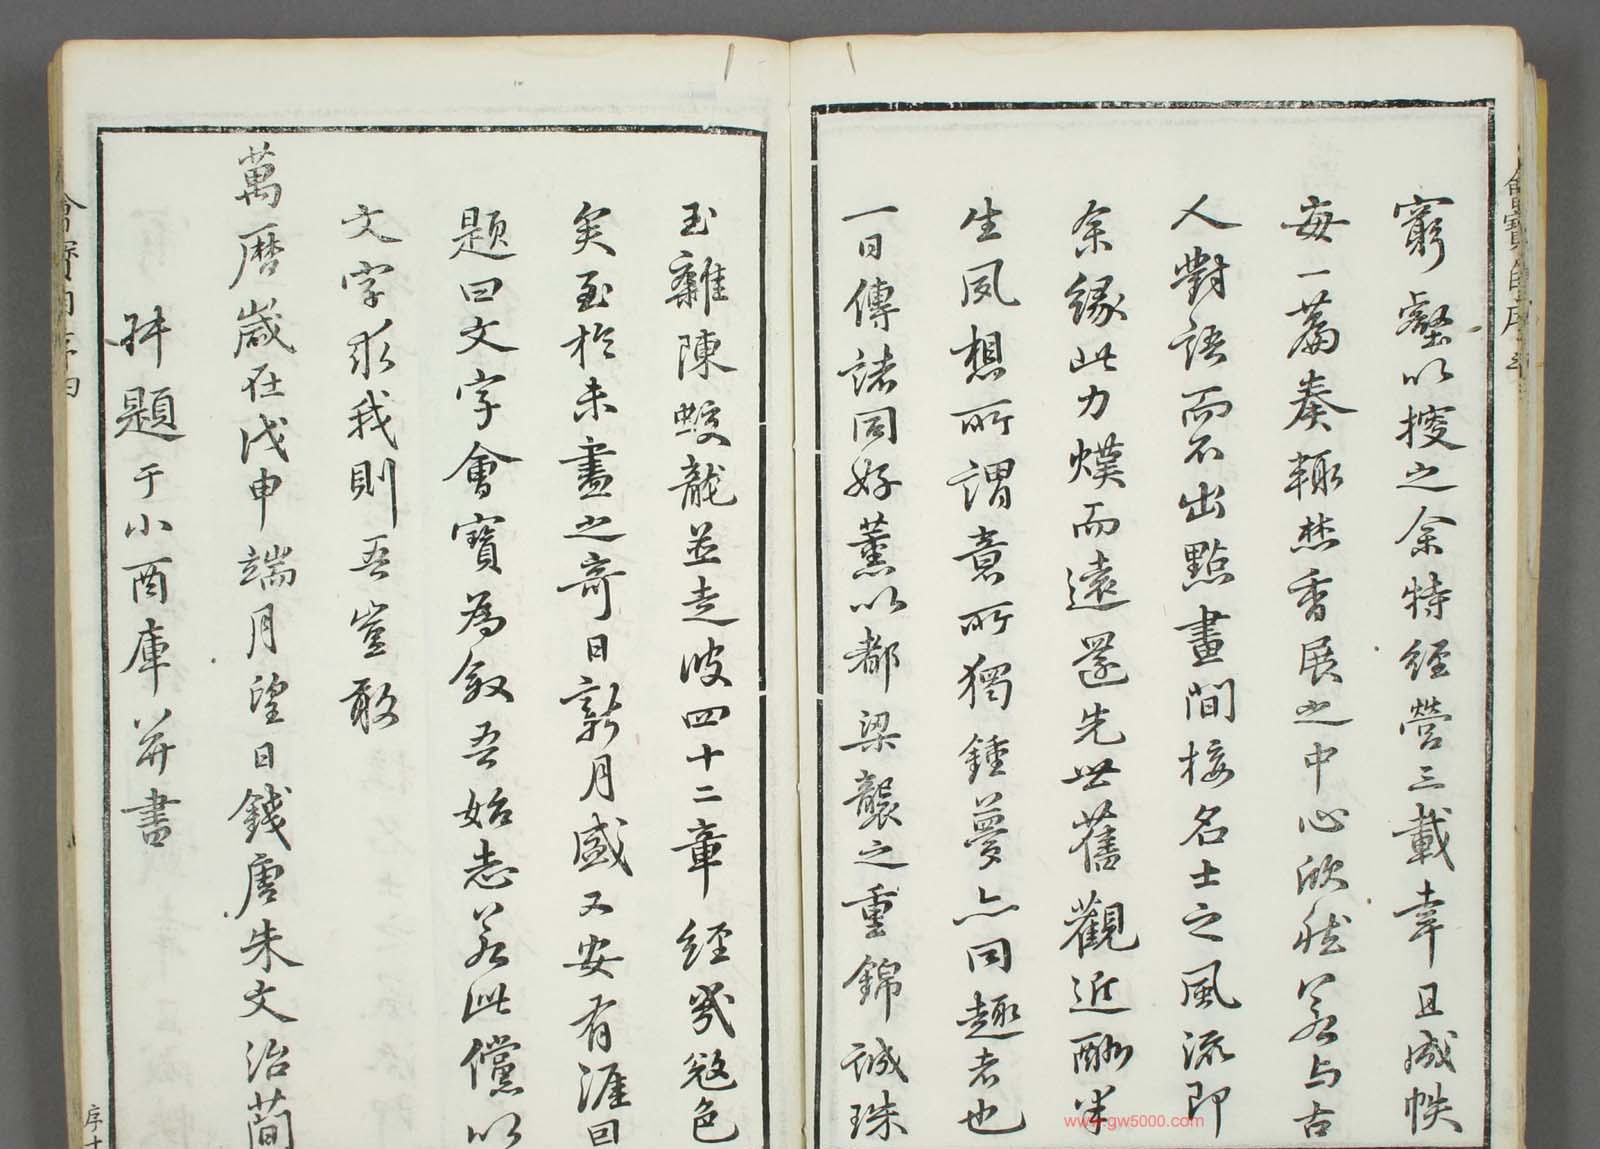 窮壑以搜之余特經營三載幸且成帙
每一篇奏輒焚香展之中心欣然若与古
人對語而不出點畫間接名士之風流即
余緣此力煤而遠還先世舊觀近酬半
生夙想所謂意所獨鍾夢亦同趣者也
一日傳諸同好薰以都梁襲之重錦誠珠
玉雜陳蛟龍並走彼四十二章經幾
矣至於未盡之奇日新月盛又安有涯回
題曰文字會寶為敘吾始志若此儻以
文字求我則吾豈敢
萬曆歲在戊申端月望日錢唐朱文治簡
叔題于小酉庫并書
會寶
www.gw5000.com